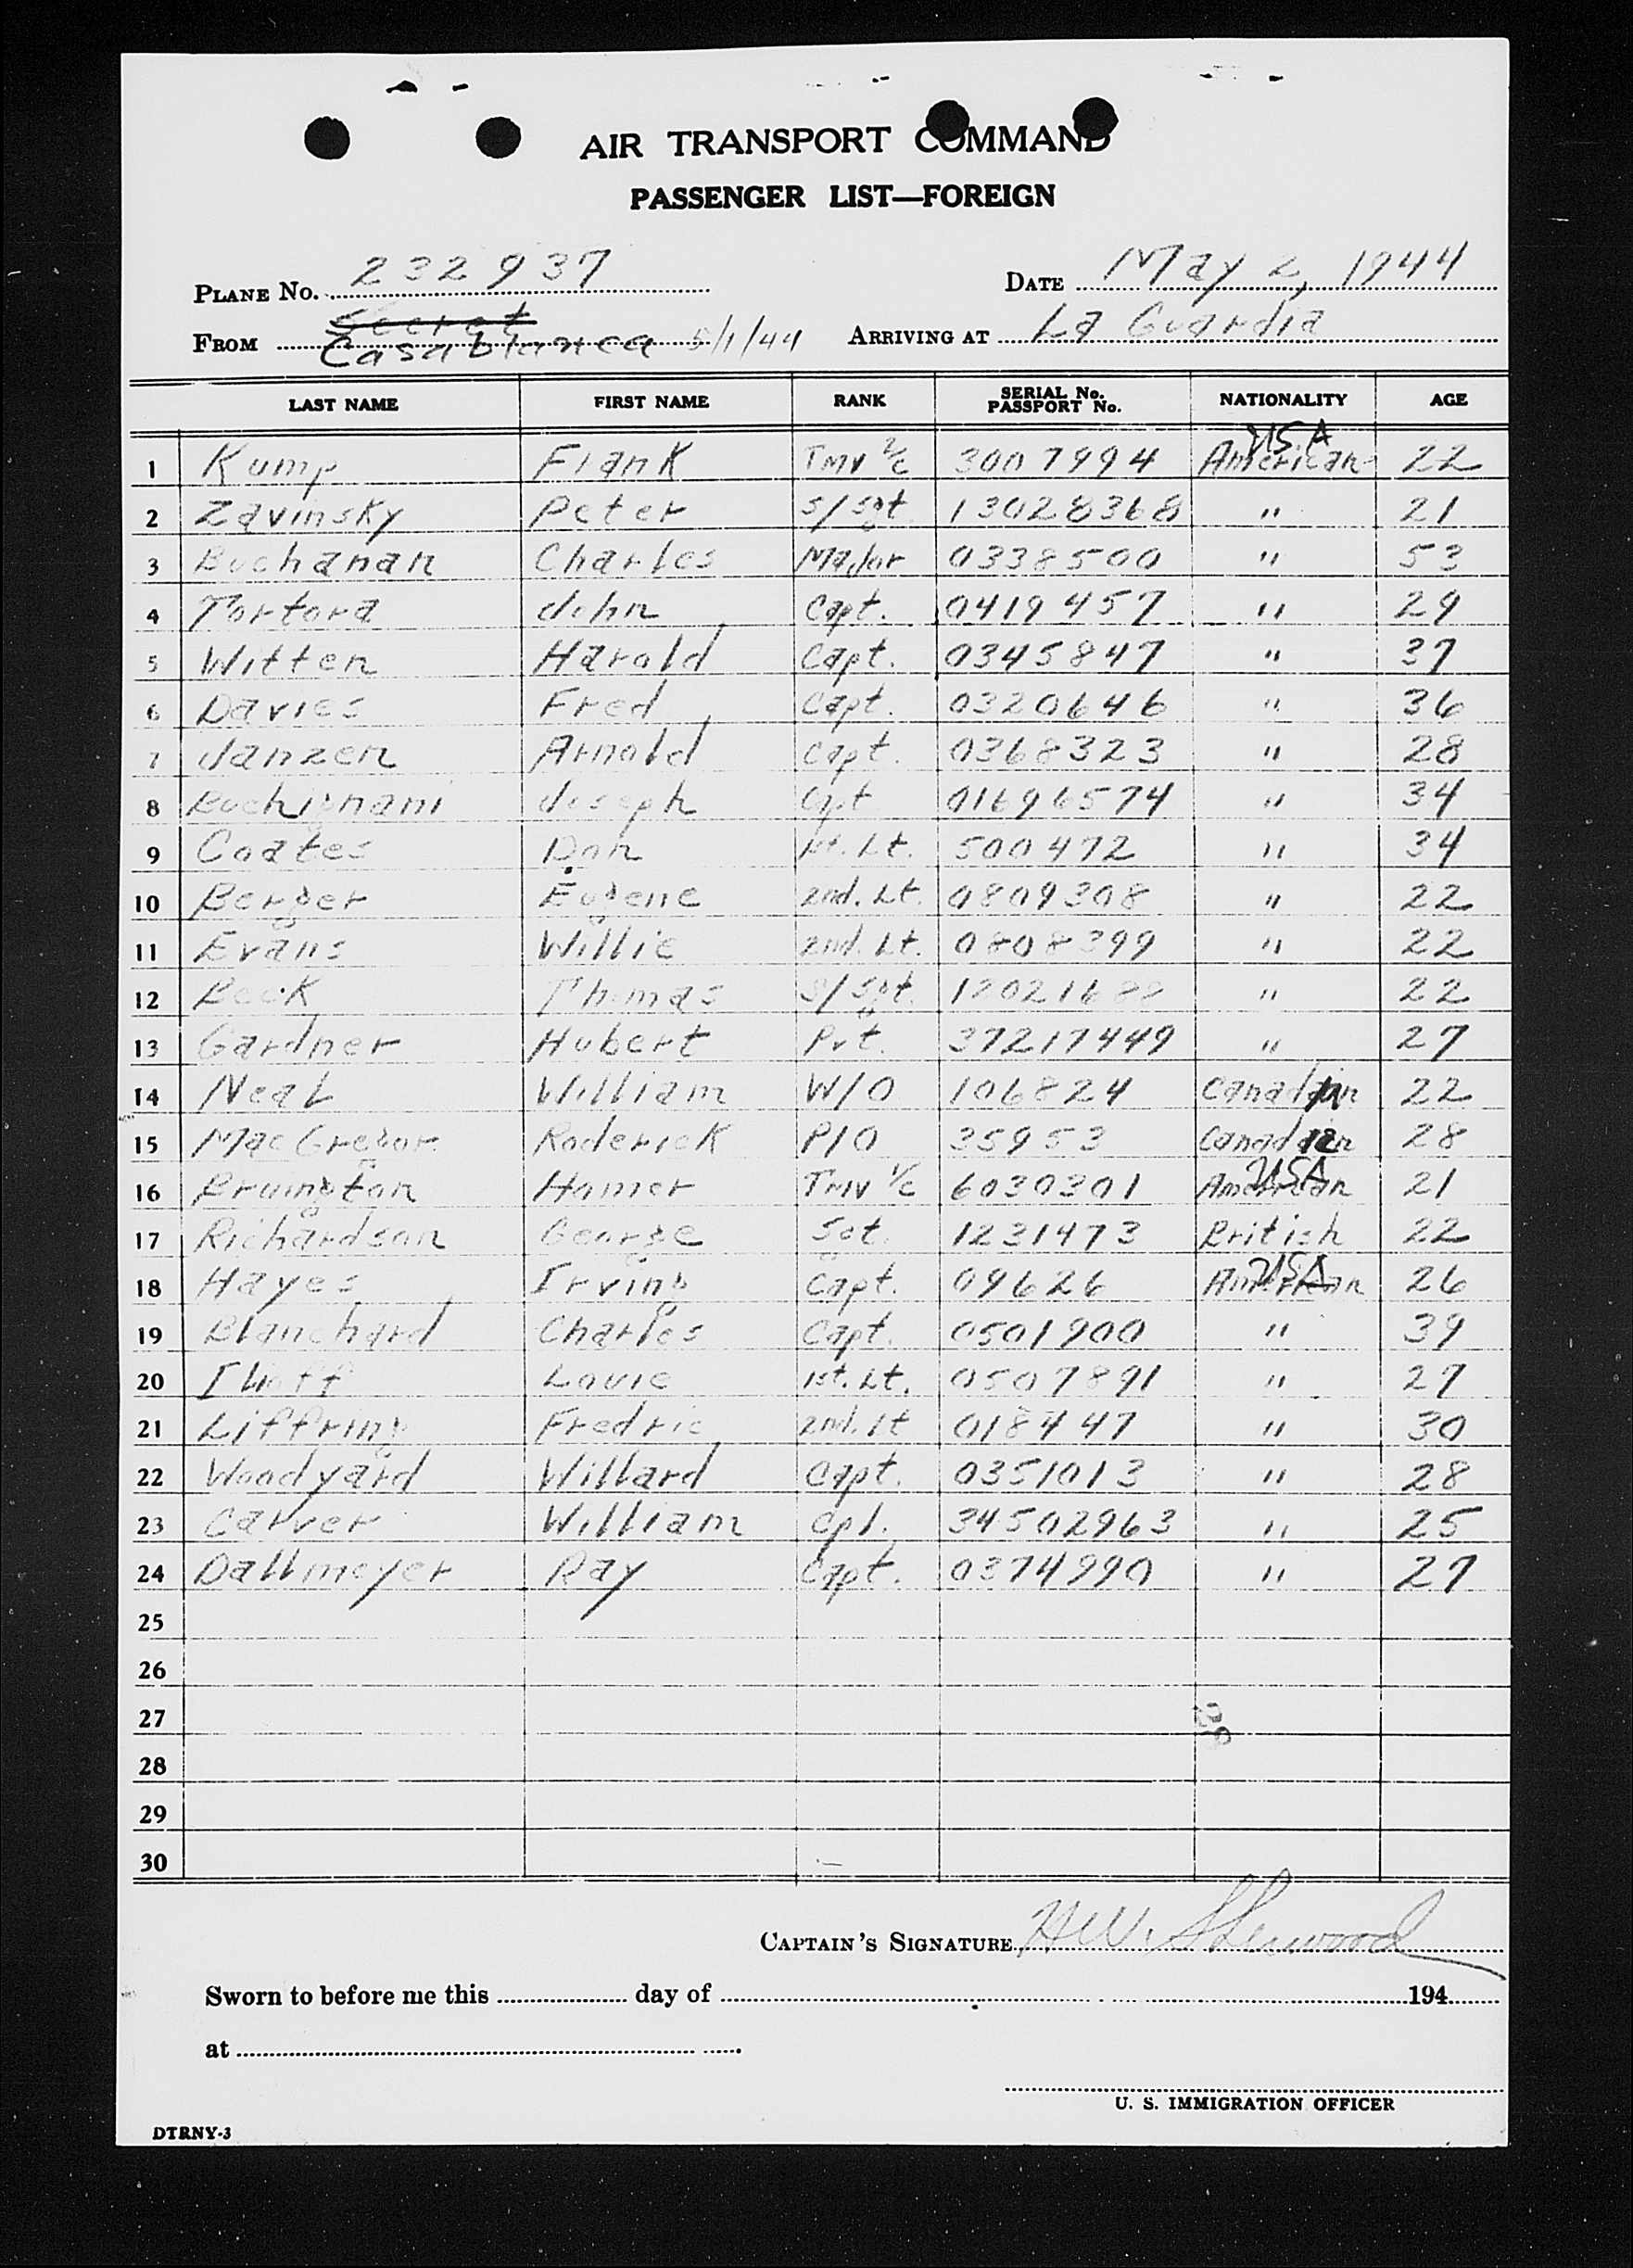 AIR TRANSPORT COMMAND
PASSENGER LIST—FOREIGN
PLANE No. 232937 DATE May 2, 1944
Secret
FROM Casablanca 5/1/44 ARRIVING AT La Guardia
LAST NAME FIRST NAME RANK SERIAL No. PASSPORT No. NATIONALITY AGE
USA
1 Kump Frank TMV 2/c 3007994 American 22
2 Zavinsky Peter S/Sgt 13028368 " 21
3 Buchanan Charles Major 0338500 " 53
4 Tortora John Capt. 0419457 " 29
5 Witten Harold Capt. 0345847 " 37
6 Davies Fred Capt. 0320646 " 36
7 Janzen Arnold Capt. 0368323 " 28
8 Buchignani Joseph Capt 01696574 " 34
9 Coates Don 1st. Lt. 500472 " 34
10 Berger Eugene 2nd. Lt. 0809308 " 22
11 Evans Willie 2nd. Lt. 0808399 " 22
12 Thomas S/Sgt. " 22
13 Gardner Hubert Pvt. 37217449 " 27
14 Neal William W/O 106824 Canadian 22
15 MacGregor Roderick P/O 35953 Canadian 28
16 Bruington Homer TMV 1/c 6030301 American USA 21
17 Richardson George Sgt. 1231473 British 22
18 Hayes Irving Capt. 09626 American USA 26
19 Blanchard Charles Capt. 0501900 " 39
20 Louie 1st. Lt. 0507891 " 27
21 Liffring Fredric 2nd. Lt 018447 " 30
22 Woodyard Willard Capt. 0351013 " 28
23 Carver William Cpl. 34502963 " 25
24 Dallmeyer Ray Capt. 0374990 " 27
25
26
27
28
29
30
CAPTAIN'S SIGNATURE H.W. Sherwood
Sworn to before me this day of 194
at
U. S. IMMIGRATION OFFICER
DTRNY-3